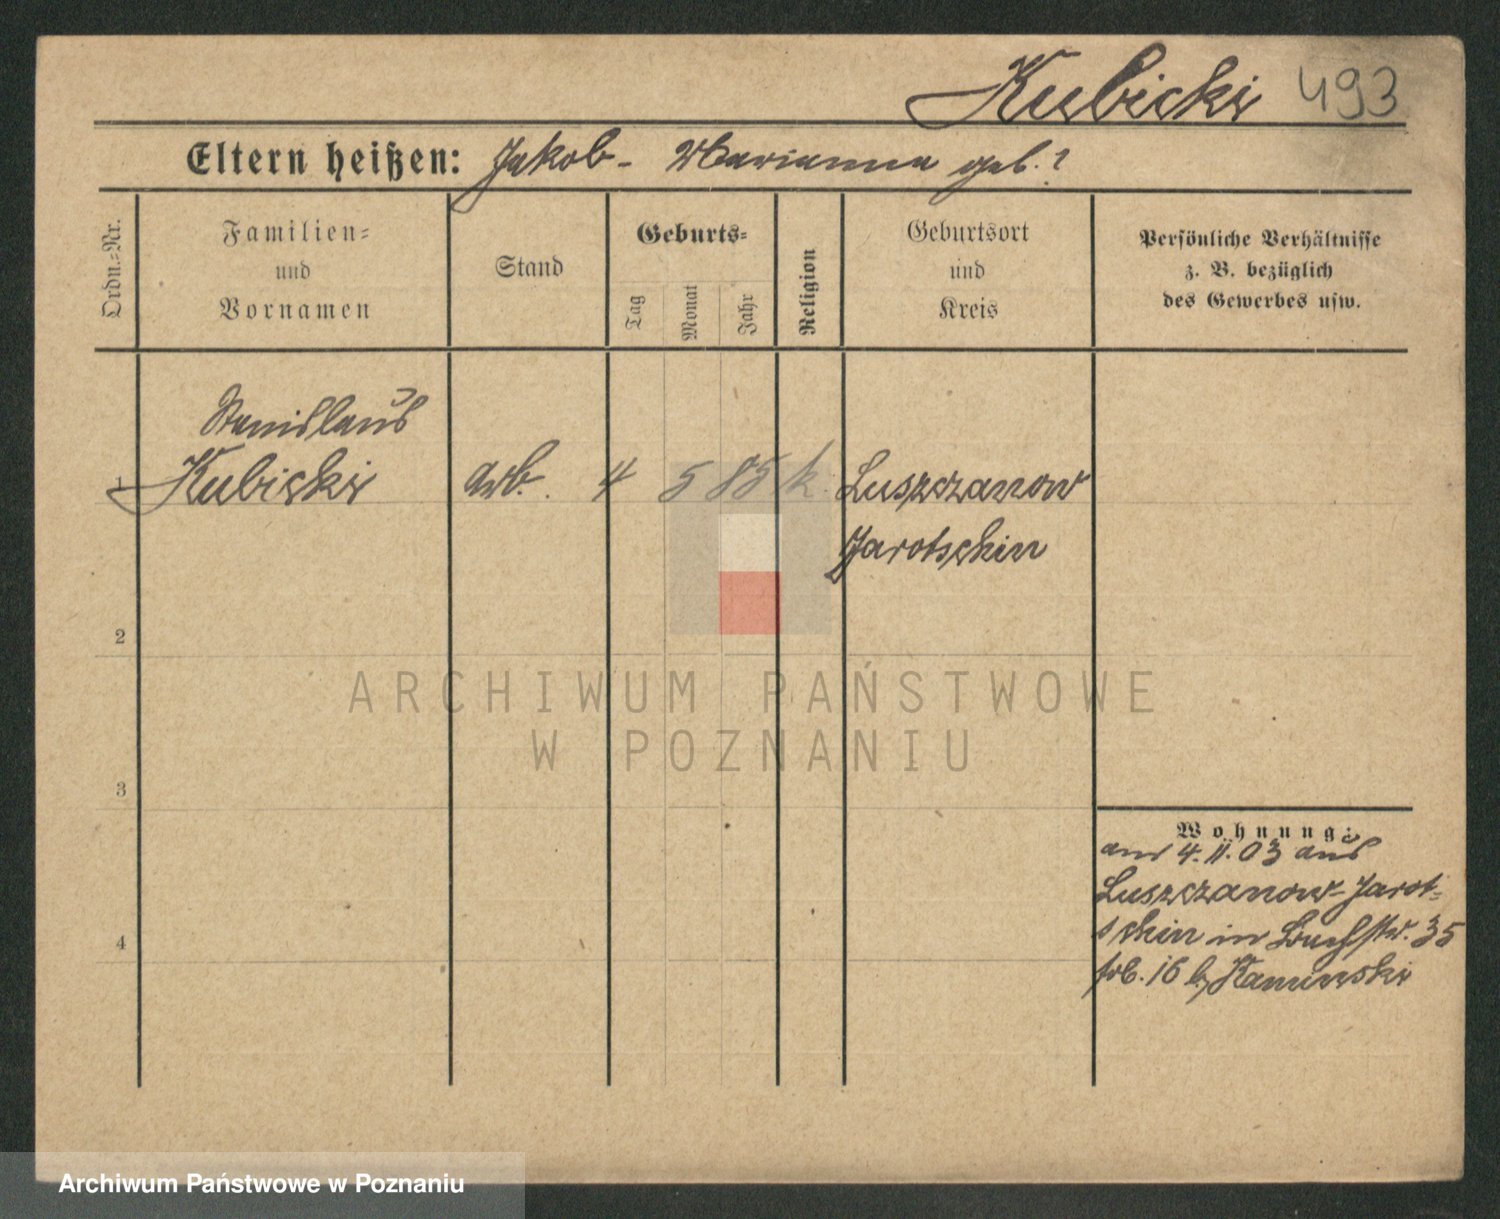 Kubicki 493
Eltern heißen: Jakob - Marianna geb. ?
Ordn.-Nr.
Familien- und Vornamen
Stand
Geburts-
Tag
Monat
Jahr
Religion
Geburtsort und Kreis
Persönliche Verhältnisse
z. B. bezüglich
des Gewerbes usw.
Stanislaus
1 Kubicki arb. 4 5 85 k. Luszczanow
Jarotschin
2
3
4
Wohnung:
am 4.11.03 aus
Luszczanow-Jarot-
schin in 35
16 b/ Kaminski
ARCHIWUM PAŃSTWOWE
W POZNANIU
Archiwum Państwowe w Poznaniu